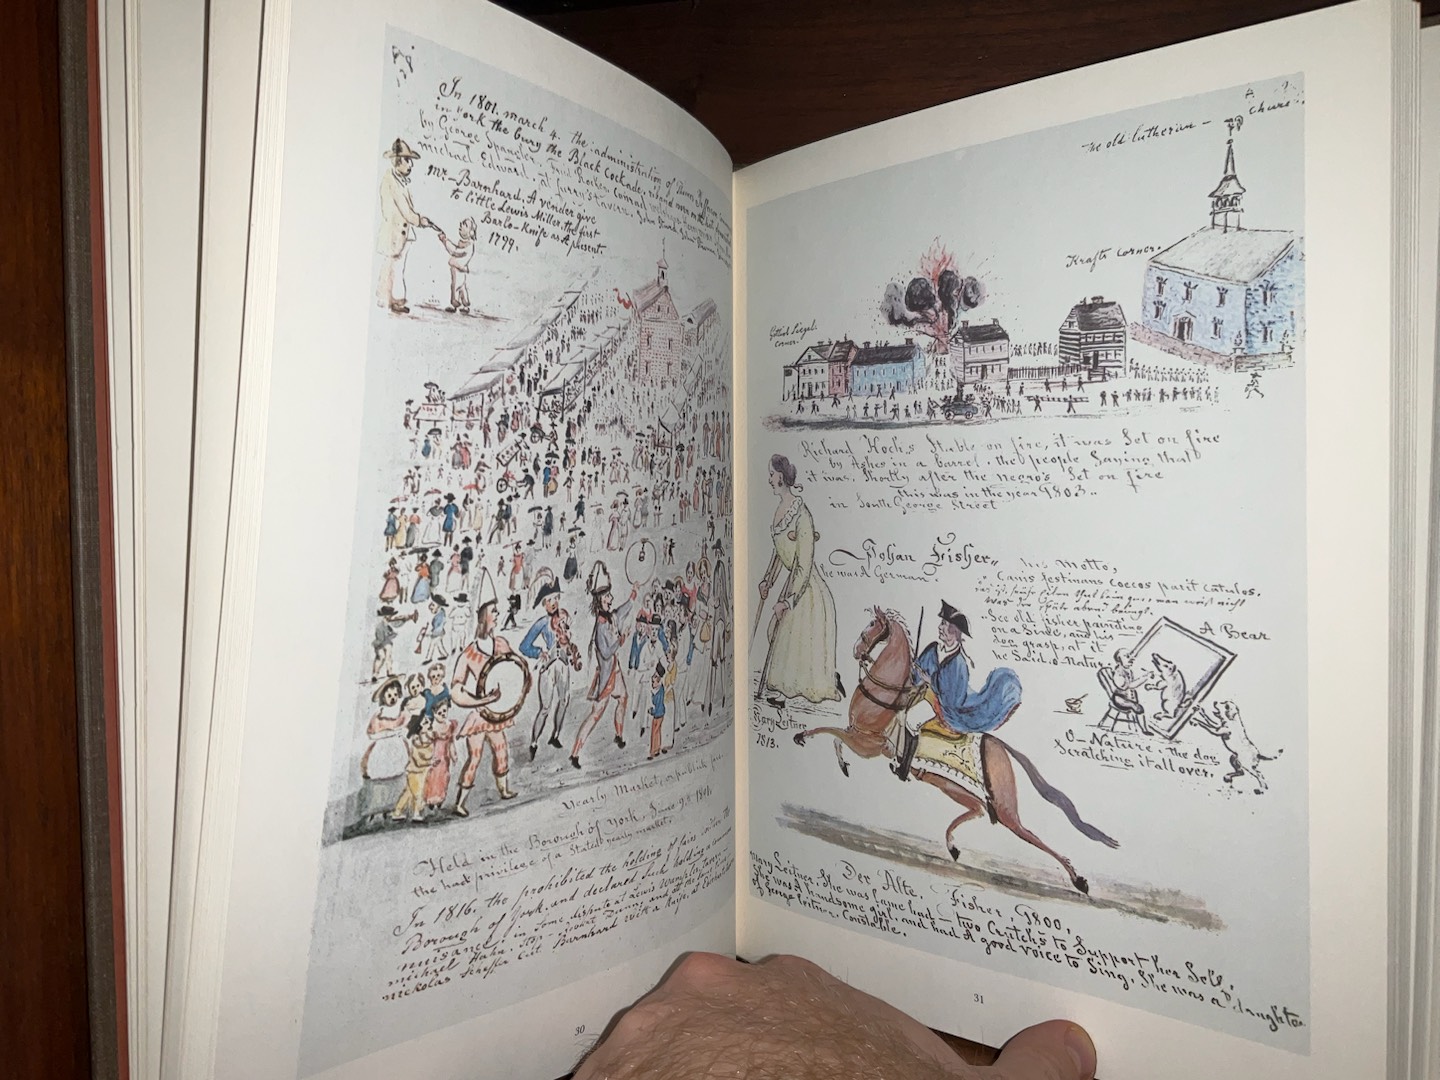 In 1801. march 4. the administration of
in york the bury the Black Cockade,
by George Spangler,
michael Edward, at
mr. Barnhard, A vender give
to little Lewis Miller, the first
Barlo-Knife as A present.
1799.
Yearly Market, or publick fair
Held in the Borough of York, June 9th 1801.
the had privilege of a Stated yearly market.
In 1816, the prohibited the holding of fairs within the
Borough of York. and declared such holding a common
nuisance: in some dispute at Lewis Wampler tavern
michael Hahn. Stop
nickolas Scheffer Cut Barnhard with a Knife,
30
the old Lutheran — church.
Krafts corner.
Gottlieb Ziegel.
corner.
Richard Koch,s Stable on fire, it was Set on fire
by Ashes in a barrel. the people Saying that
it was. Shortly after the negro's Set on fire
this was in the year 1803..
in South George Street
Johan Fisher,,
he was A German.
his Motto,
"Canis festinans coecos parit catulos.
See old fisher painting
on a Side, and his
dog grasp, at it
he Said, o-Natur.
A Bear
O—Nature. the dog
Scratching it all over.
Mary Leitner
1813.
Der Alte, Fisher, 1800.
Mary Leitner, She was lame had — two Crutch's to Support her Self,
She was A handsome girl, and had A good voice to Sing, She was a daughter
of George Leitner, Constable.
31